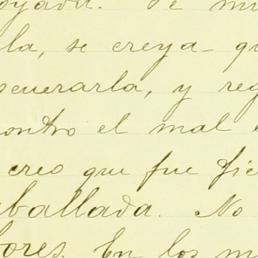 la, se creya qu
scuerarla, y reg
contro el mal
creo que fue fie
aballada. No
bores. En los m